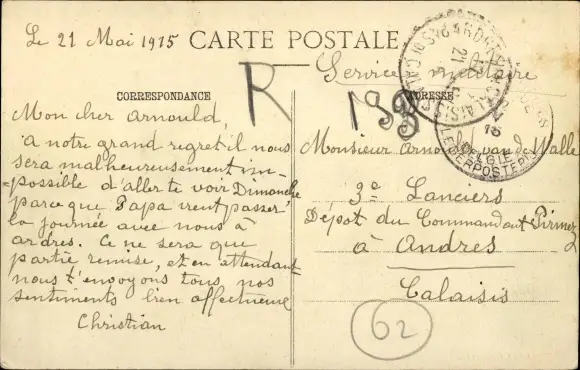 Le 21 Mai 1915
CARTE POSTALE
Service militaire
R
CORRESPONDANCE
ADRESSE
Mon cher Arnould,
A notre grand regret il nous
sera malheureusement im-
possible d'aller te voir Dimanche
parce que Papa vient passer
la journée avec nous à
ardres. Ce ne sera que
partie remise, et en attendant
nous t'envoyons tous nos
sentiments bien affectueux
Christian
Monsieur Arnould van de Walle
3e Lanciers
Dépôt du Commandant Pirmez
à Andres
Calaisis
62
ARDRES
PAS DE CALAIS
21
BELGIE
LEGERPOSTERIJ